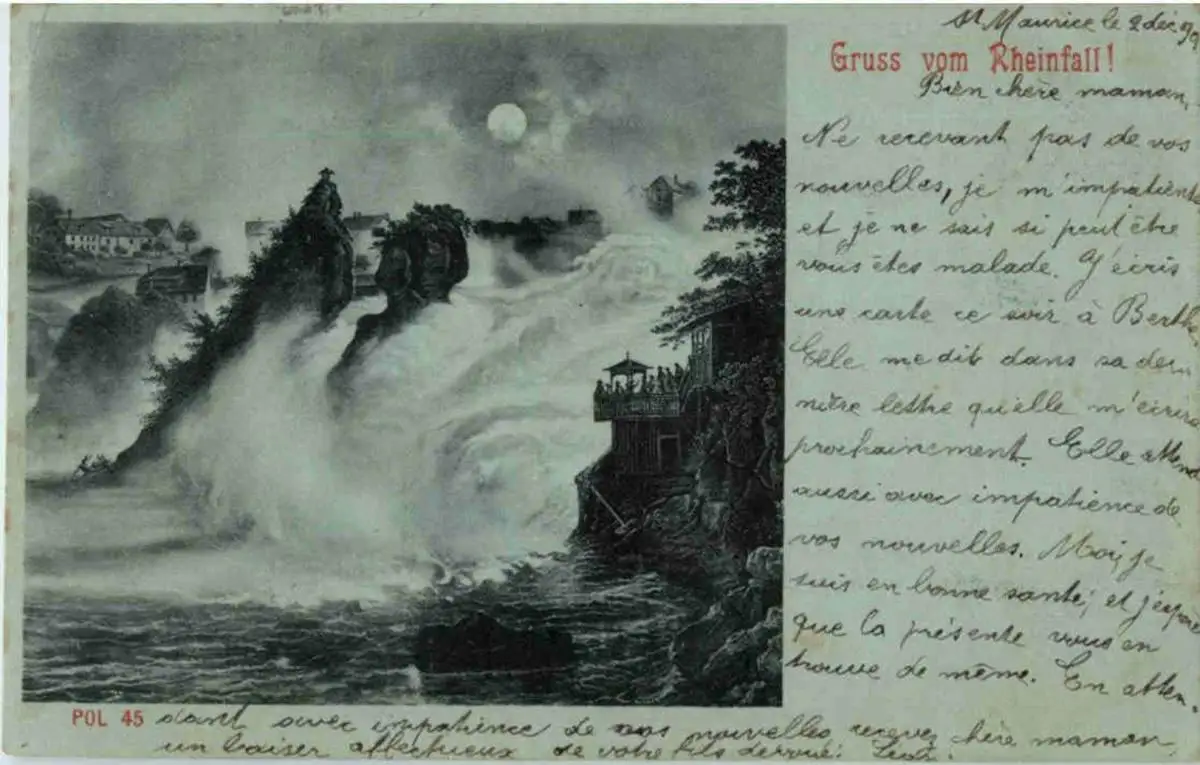 St Maurice le 2 déc 99
Gruss vom Rheinfall!
Bien chère maman,
Ne recevant pas de vos
nouvelles, je m'impatiente
et je ne sais si peut être
vous êtes malade. J'écris
une carte ce soir à Berthe.
Elle me dit dans sa der
nière lettre qu'elle m'écrira
prochainement. Elle attend
aussi avec impatience de
vos nouvelles. Moi, je
suis en bonne santé, et j'espère
que la présente vous en
trouve de même. En atten-
POL 45
dant avec impatience de vos nouvelles, recevez chère maman,
un baiser affectueux de votre fils dévoué: